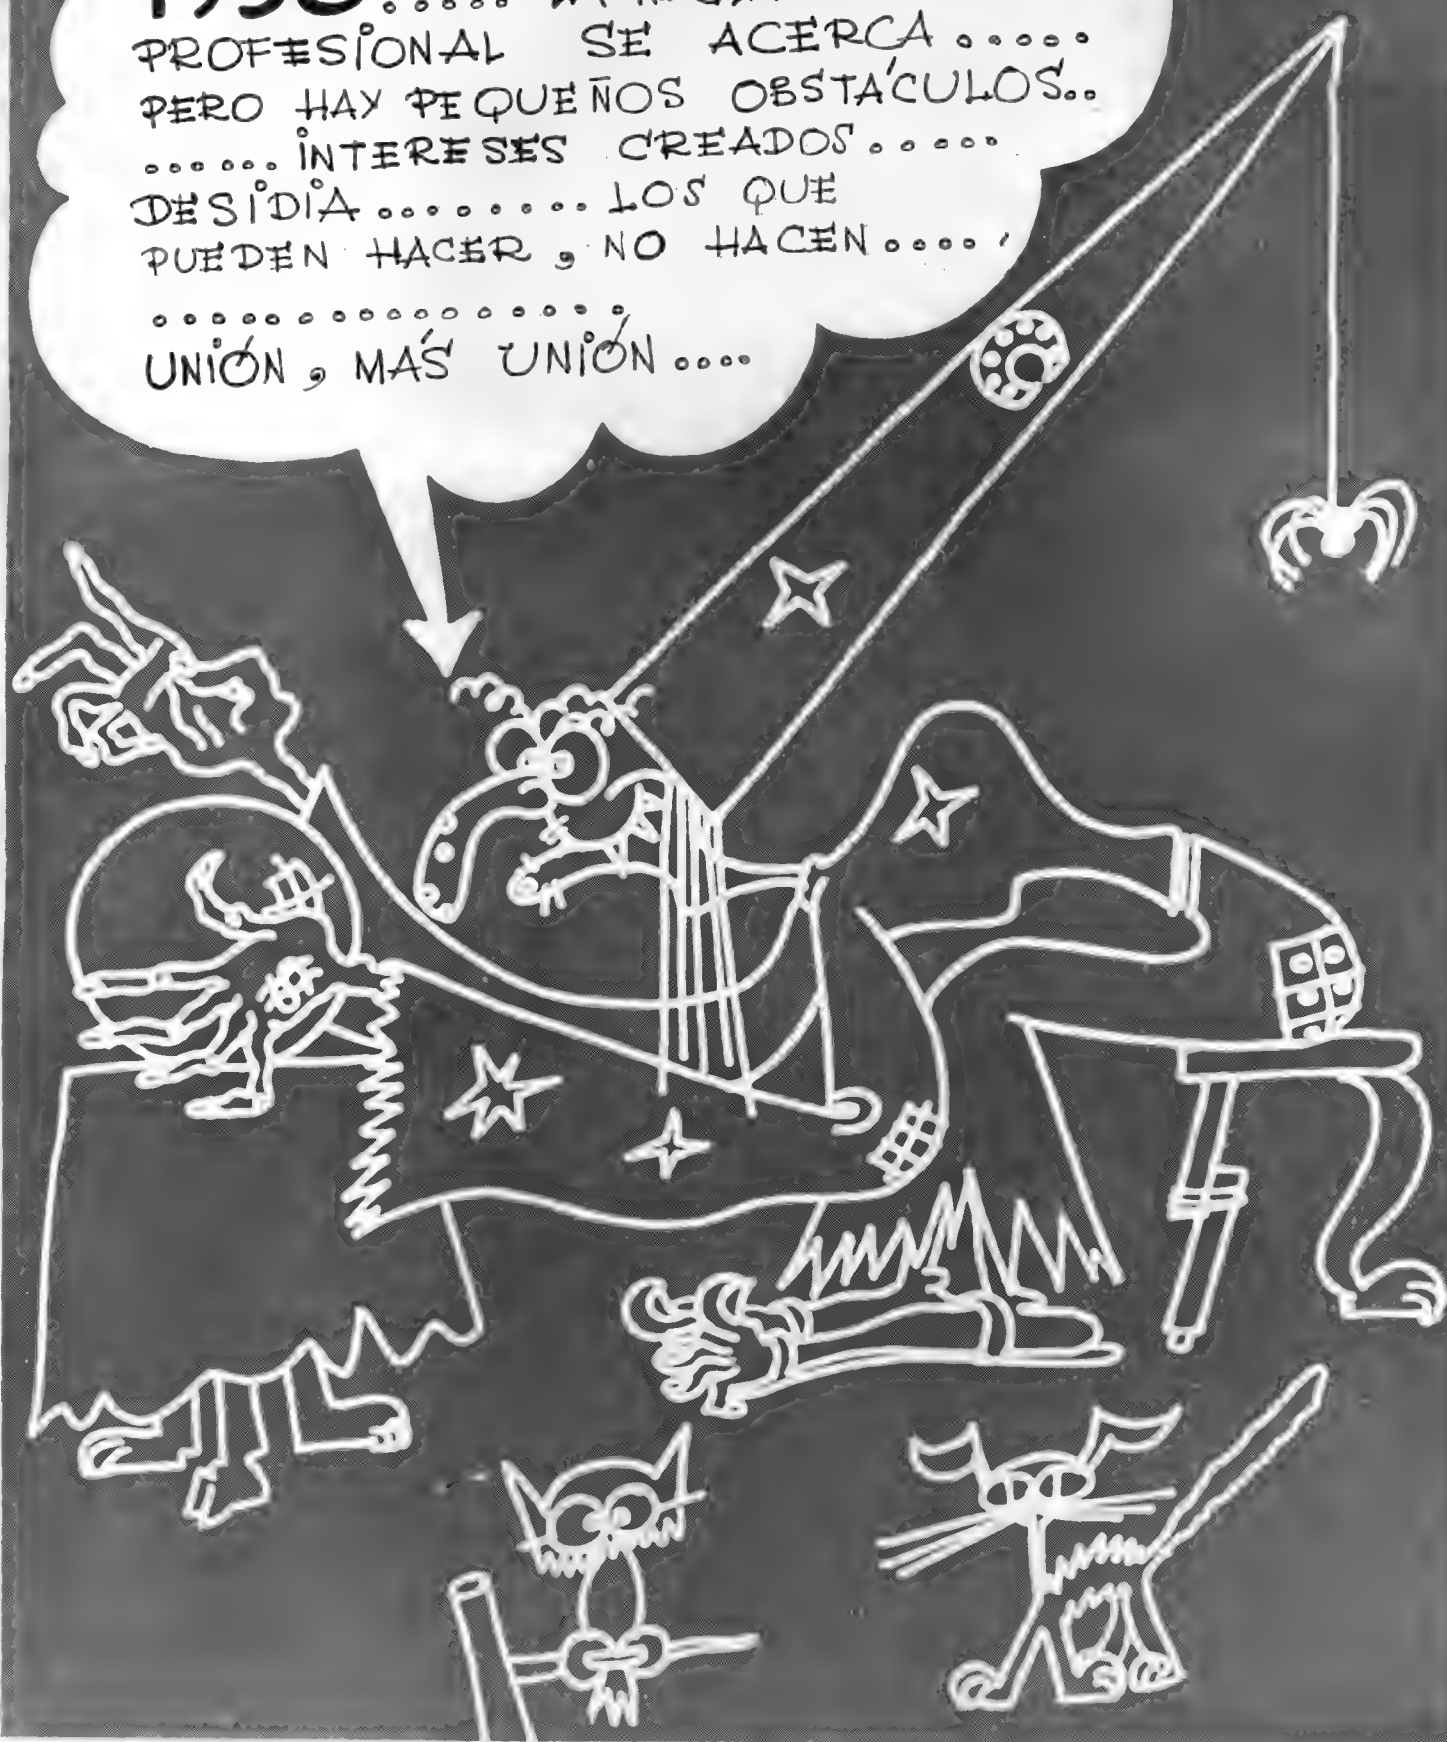 PROFESIONAL SE ACERCA .....
PERO HAY PEQUEÑOS OBSTÁCULOS..
...... INTERESES CREADOS .....
DESIDIA ........ LOS QUE
PUEDEN HACER, NO HACEN .....
.................
UNIÓN, MÁS UNIÓN ....